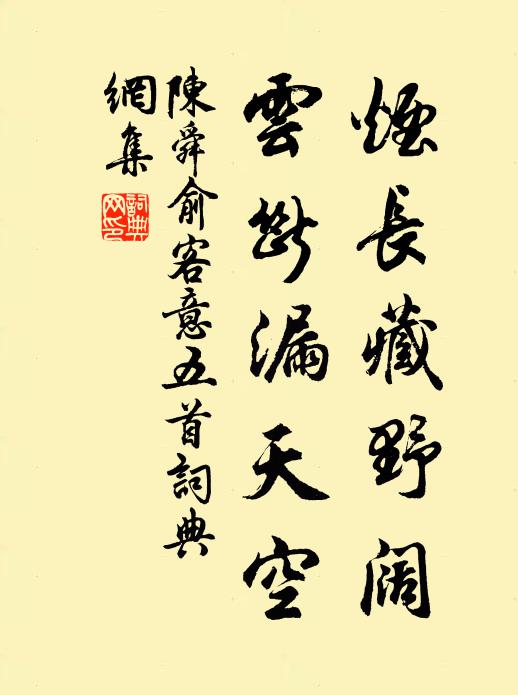 煙長藏野阔
雲斷漏天空
陳舜俞客意五首詞典
網集
詞典网印